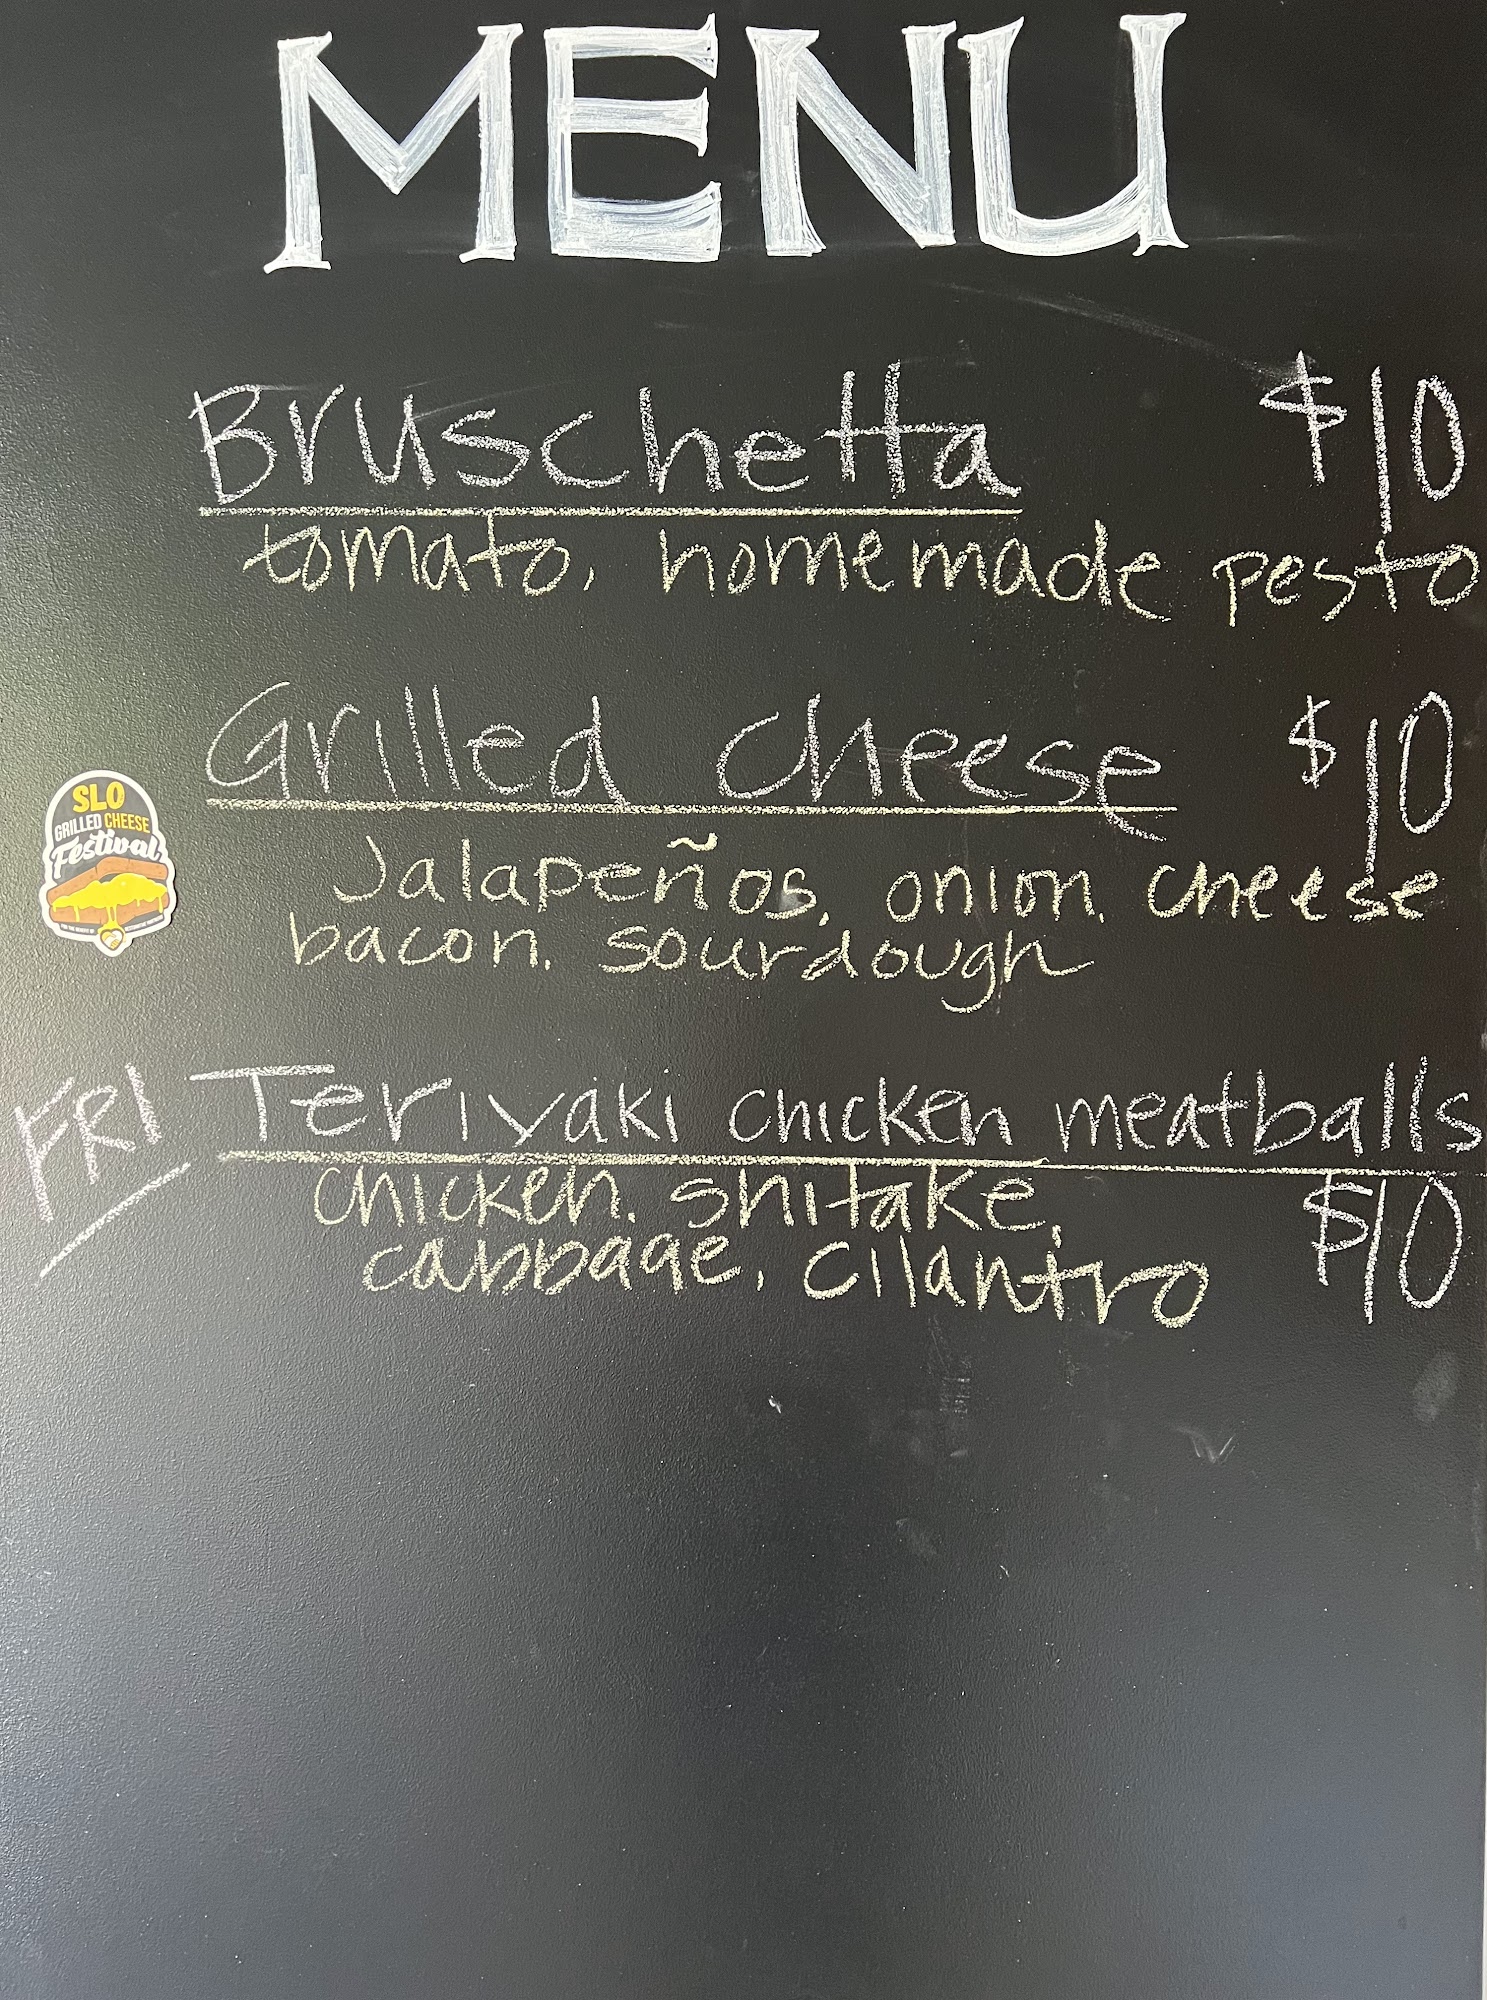 MENU
Bruschetta $10
tomato, homemade pesto
Grilled cheese $10
SLO
GRILLED CHEESE
Festival
Jalapeños, onion, cheese
bacon, sourdough
FRI Teriyaki chicken meatballs
chicken, shitake, $10
cabbage, cilantro